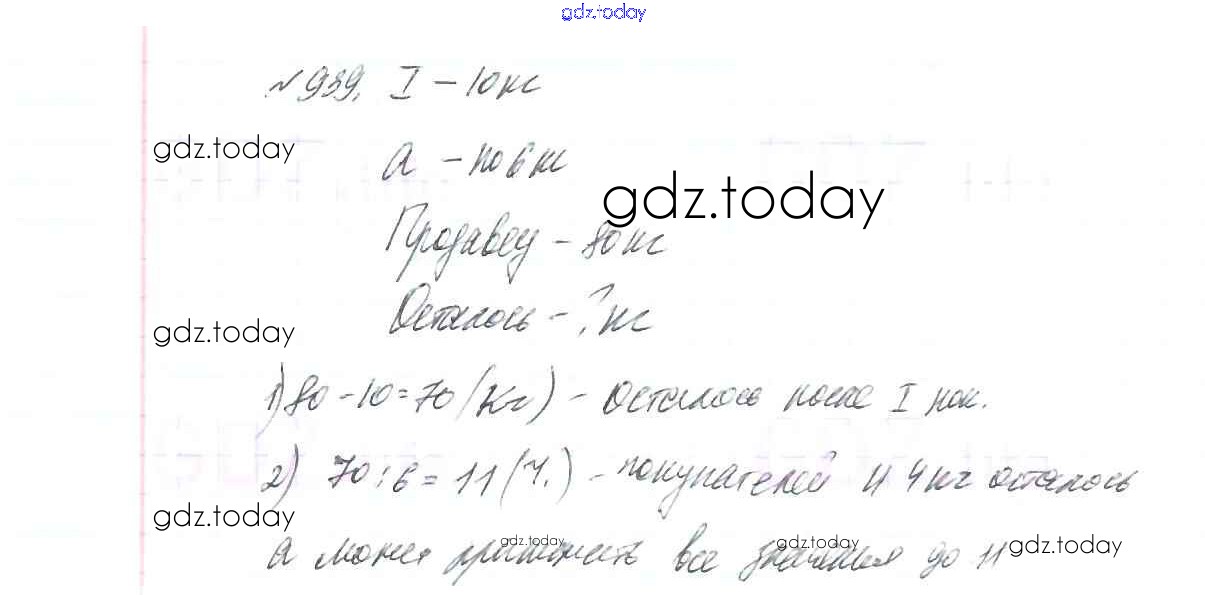 gdz.today
№ 939. I – 10 кг
gdz.today
а – по 6 кг
gdz.today
Продавец – 80 кг
Осталось – ? кг
gdz.today
1) 80 – 10 = 70 (кг) – осталось после I пок.
2) 70 : 6 = 11 (ч.) – покупателей и 4 кг осталось
gdz.today
а может принимать все значения до 11
gdz.today
gdz.today
gdz.today